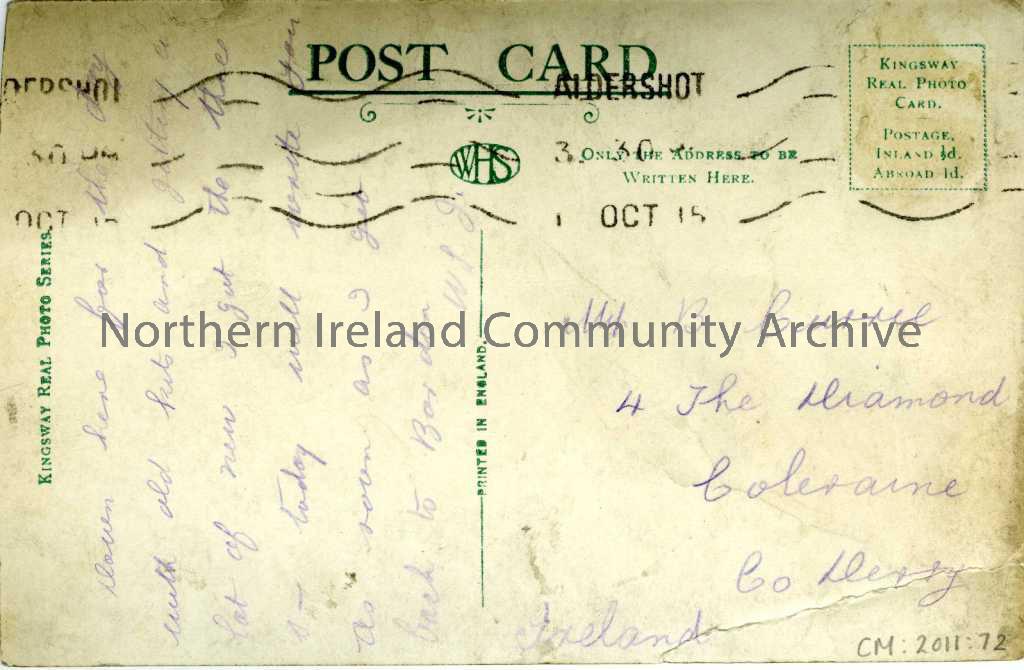 POST CARD
KINGSWAY
REAL PHOTO
CARD.
POSTAGE,
INLAND ½d.
ABROAD 1d.
ALDERSHOT
3. 30
OCT 15
WHS
ONLY THE ADDRESS TO BE
WRITTEN HERE.
KINGSWAY REAL PHOTO SERIES.
PRINTED IN ENGLAND.
Down here for the day
with old kits and getting a
lot of new I got the three
today will write you
as soon as I get
back to Bordon
4 The Diamond
Coleraine
Co Derry
Ireland
Northern Ireland Community Archive
CM:2011:72